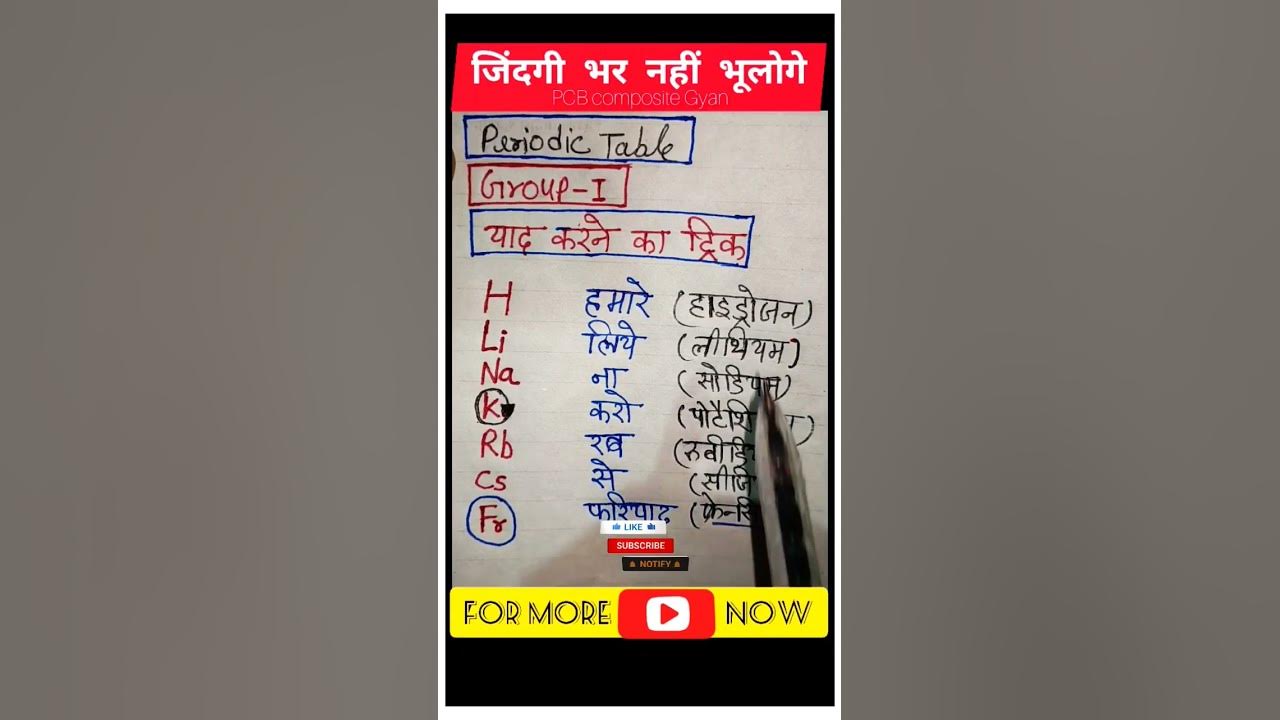 जिंदगी भर नहीं भूलोगे
PCB composite Gyan
Periodic Table
Group-I
याद करने का ट्रिक
H हमारे (हाइड्रोजन)
Li लिये (लीथियम)
Na ना (सोडियम)
K करो
Rb रब
Cs से
Fr फरियाद
LIKE
SUBSCRIBE
NOTIFY
FOR MORE NOW